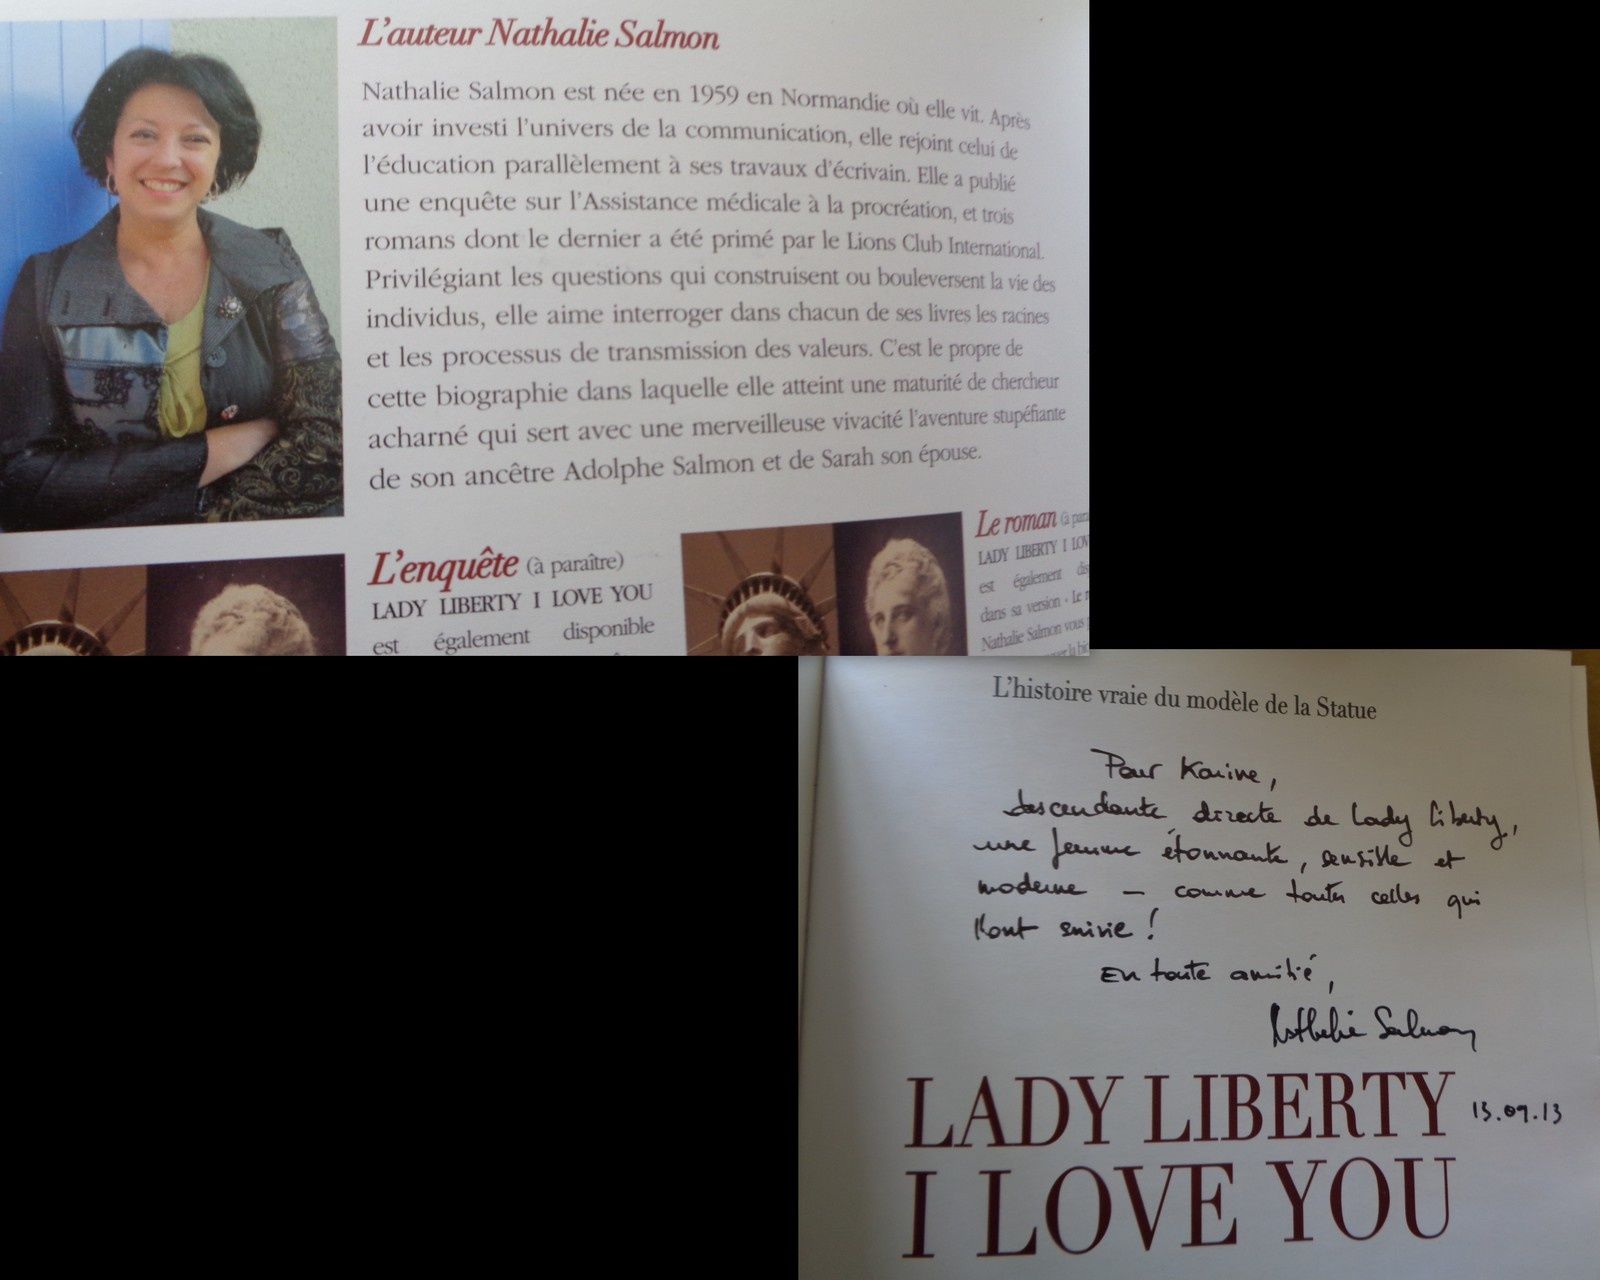 L'auteur Nathalie Salmon
Nathalie Salmon est née en 1959 en Normandie où elle vit. Après
avoir investi l'univers de la communication, elle rejoint celui de
l'éducation parallèlement à ses travaux d'écrivain. Elle a publié
une enquête sur l'Assistance médicale à la procréation, et trois
romans dont le dernier a été primé par le Lions Club International.
Privilégiant les questions qui construisent ou bouleversent la vie des
individus, elle aime interroger dans chacun de ses livres les racines
et les processus de transmission des valeurs. C'est le propre de
cette biographie dans laquelle elle atteint une maturité de chercheur
acharné qui sert avec une merveilleuse vivacité l'aventure stupéfiante
de son ancêtre Adolphe Salmon et de Sarah son épouse.
L'enquête (à paraître)
LADY LIBERTY I LOVE YOU
est également disponible
Le roman (à
LADY LIBERTY I
est également
dans sa version - Le
Nathalie Salmon vous
L'histoire vraie du modèle de la Statue
Pour Karine,
descendante directe de Lady Liberty,
une femme étonnante, sensible et
moderne – comme toutes celles qui
l'ont suivie !
En toute amitié,
Nathalie Salmon
LADY LIBERTY 13.09.13
I LOVE YOU